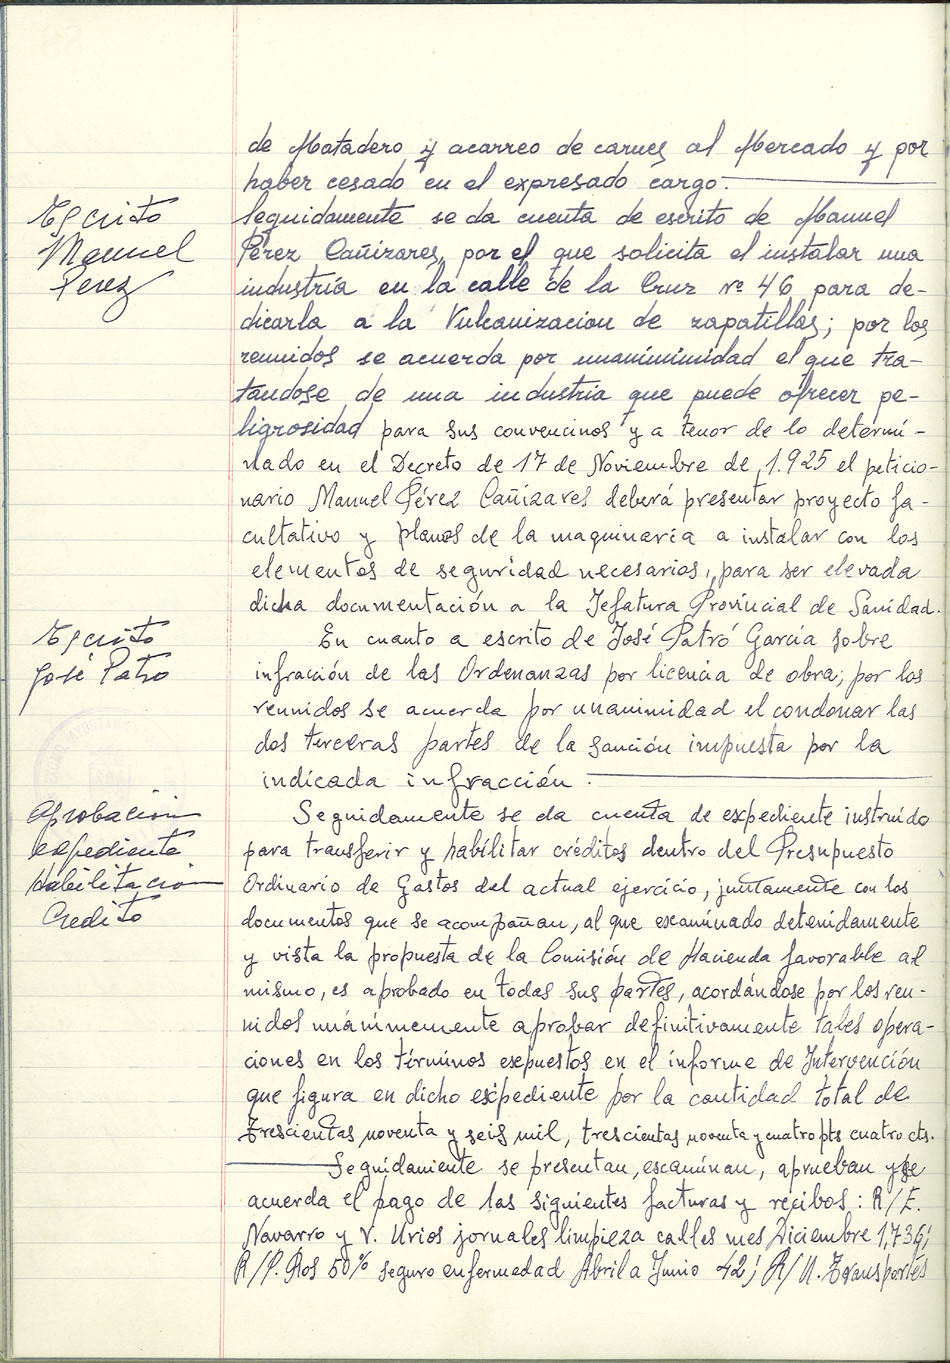 de Matadero y acarreo de carnes al Mercado y por
haber cesado en el expresado cargo.
Escrito
Manuel
Perez
Seguidamente se da cuenta de escrito de Manuel
Pérez Cañizares, por el que solicita el instalar una
industria en la calle de la Cruz nº 46 para de-
dicarla a la Vulcanizacion de zapatillas; por los
reunidos se acuerda por unanimimidad el que tra-
tandose de una industria que puede ofrecer pe-
ligrosidad para sus convencinos y a tenor de lo determi-
nado en el Decreto de 17 de Noviembre de 1.925 el peticio-
nario Manuel Pérez Cañizares deberá presentar proyecto fa-
cultativo y planos de la maquinaria a instalar con los
elementos de seguridad necesarios, para ser elevada
dicha documentación a la Jefatura Provincial de Sanidad.
Escrito
José Patro
En cuanto a escrito de José Patró García sobre
infracción de las Ordenanzas por licencia de obra; por los
reunidos se acuerda por unanimidad el condonar las
dos terceras partes de la sanción impuesta por la
indicada infracción.
Aprobacion
expediente
habilitacion
Credito
Seguidamente se da cuenta de expediente instruido
para transferir y habilitar créditos dentro del Presupuesto
Ordinario de Gastos del actual ejercicio, juntamente con los
documentos que se acompañan, al que examinado detenidamente
y vista la propuesta de la Comisión de Hacienda favorable al
mismo, es aprobado en todas sus partes, acordándose por los reu-
nidos unánimemente aprobar definitivamente tales opera-
ciones en los términos expuestos en el informe de Intervención
que figura en dicho expediente por la cantidad total de
Trescientas noventa y seis mil, trescientas noventa y cuatro pts cuatro cts.
Seguidamente se presentan, examinan, aprueban y se
acuerda el pago de las siguientes facturas y recibos: R/E.
Navarro y V. Urios jornales limpieza calles mes Diciembre 1,736;
R/P. Ros 50% seguro enfermedad Abril a Junio 42; R/U. Transportes